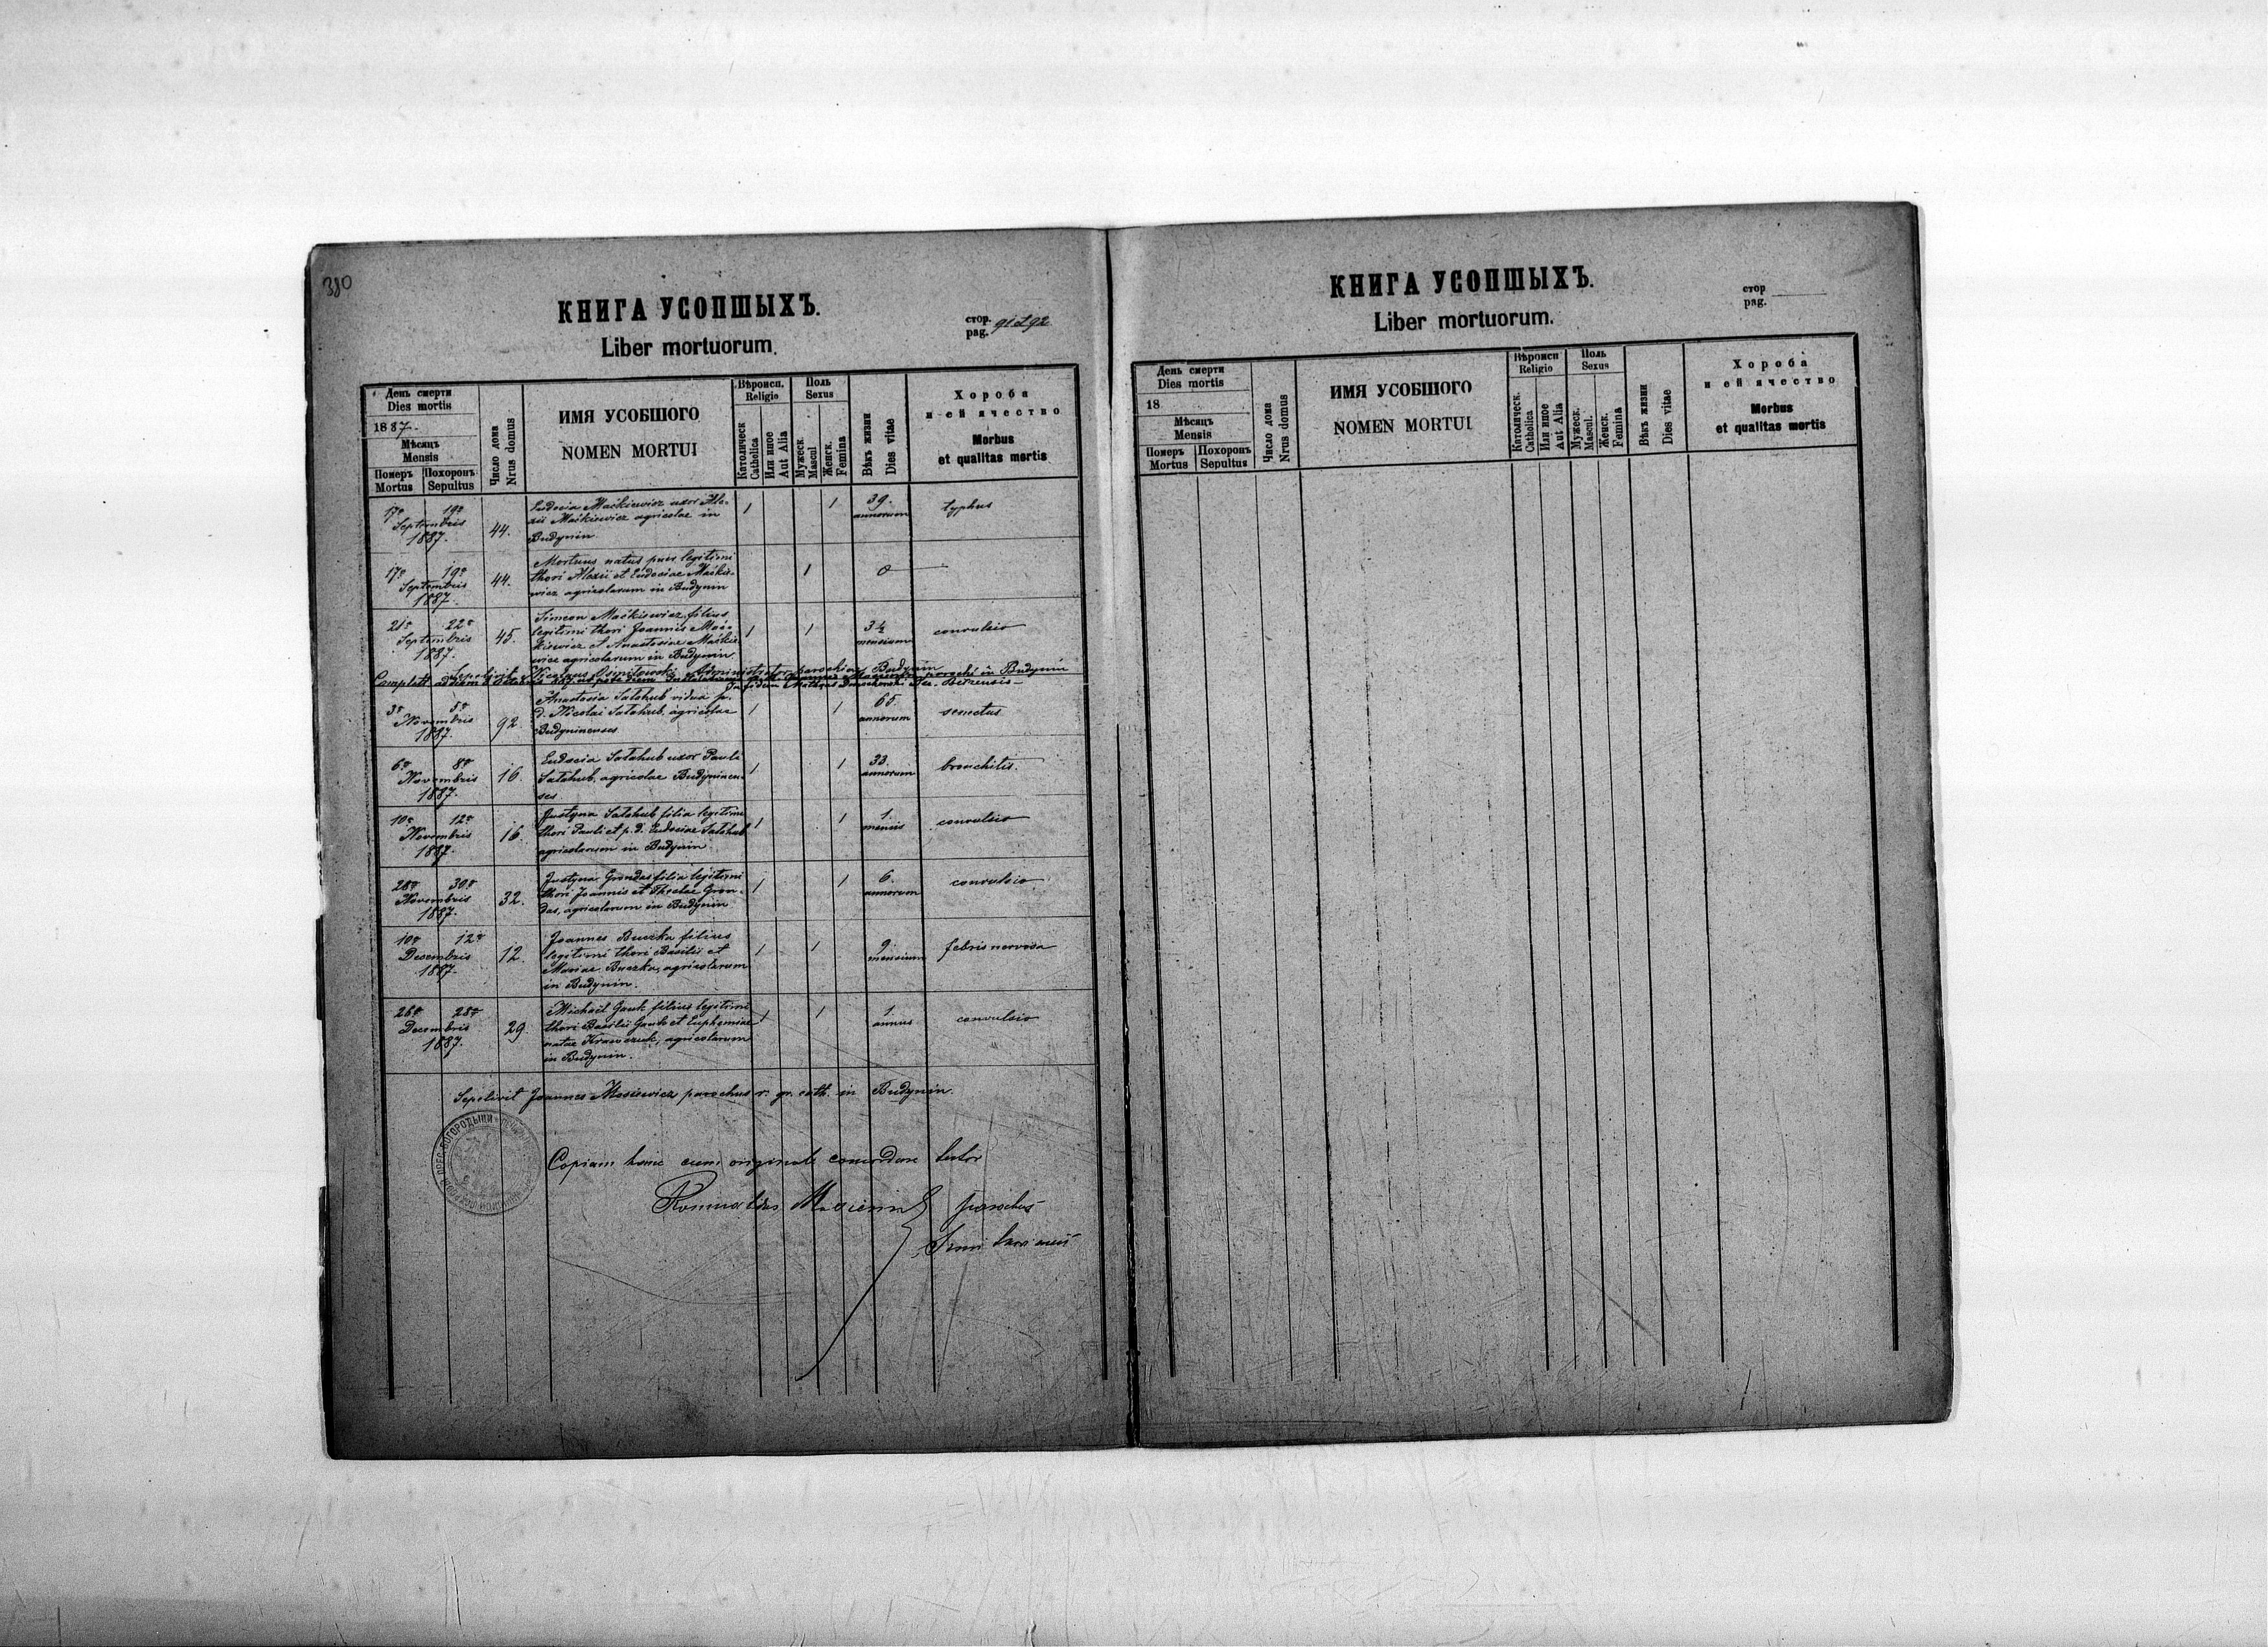 380
КНИГА УСОПШЫХЪ.
Liber mortuorum.
стор.
pag. 91 & 92
День смерти
Dies mortis
1887.
Мѣсяцъ
Mensis
Померъ
Mortus
Похоронъ
Sepultus
Число дома
Nrus domus
ИМЯ УСОБШОГО
NOMEN MORTUI
Вѣроисп.
Religio
Католическ
Catholica
Или иное
Aut Alia
Поль
Sexus
Мужеск.
Mascul
Женск.
Femina
Вѣкъ жизни
Dies vitae
Хороба
и ей ячество
Morbus
et qualitas mortis
17º 19º
Septembris
1887.
44.
Eudocia Maćkiewicz uxor Ale-
xii Maćkiewicz agricolae in
Budynin
1
1
39.
annorum
typhus
17º 19º
Septembris
1887.
44.
Mortuus natus puer legitimi
thori Alexii et Eudociae Maćkie-
wicz agricolarum in Budynin
1
0
21º 22º
Septembris
1887.
45.
Simeon Maćkiewicz filius
legitimi thori Joannis Mać-
kiewicz et Anastasiae Maćkie-
wicz agricolarum in Budynin
1
1
3½
mensium
convulsio
Administrator parochiae Budynin
parochi in Budynin
3º 5º
Novembris
1887.
92.
Anastasia Sałahub vidua p.
d. Nicolai Sałahub, agricolae
Budyninenses
1
1
65.
annorum
senectus
6º 8º
Novembris
1887.
16.
Eudocia Sałahub uxor Pauli
Sałahub, agricolae Budyninen-
ses
1
1
33.
annorum
bronchitis.
10º 12º
Novembris
1887.
16.
Justyna Sałahub filia legitimi
thori Pauli et p. d. Eudociae Sałahub
agricolarum in Budynin.
1
1
1.
mensis
convulsio
28º 30º
Novembris
1887.
32.
Justyna Grondas filia legitimi
thori Joannis et Theclae Gron-
das, agricolarum in Budynin
1
1
6.
annorum
convulsio
10º 12º
Decembris
1887.
12.
Joannes Buczka filius
legitimi thori Basilii et
Mariae Buczka, agricolarum
in Budynin.
1
1
9.
mensium
febris nervosa
26º 28º
Decembris
1887.
29.
Michaël Gauk filius legitimi
thori Basilii Gauk et Euphemiae
natae Krawczuk, agricolarum
in Budynin.
1
1
1.
annus
convulsio
Sepelivit Joannes Mosiewicz parochus r. gr. cath. in Budynin.
Copiam hanc cum originale concordare testor
parochus
КНИГА УСОПШЫХЪ.
Liber mortuorum.
стор
pag.
День смерти
Dies mortis
18
Мѣсяцъ
Mensis
Померъ
Mortus
Похоронъ
Sepultus
Число дома
Nrus domus
ИМЯ УСОБШОГО
NOMEN MORTUI
Вѣроисп
Religio
Католическ.
Catholica
Или иное
Aut Alia
Поль
Sexus
Мужеск.
Mascul.
Женск.
Femina
Вѣкъ жизни
Dies vitae
Хороба
и ей ячество
Morbus
et qualitas mortis